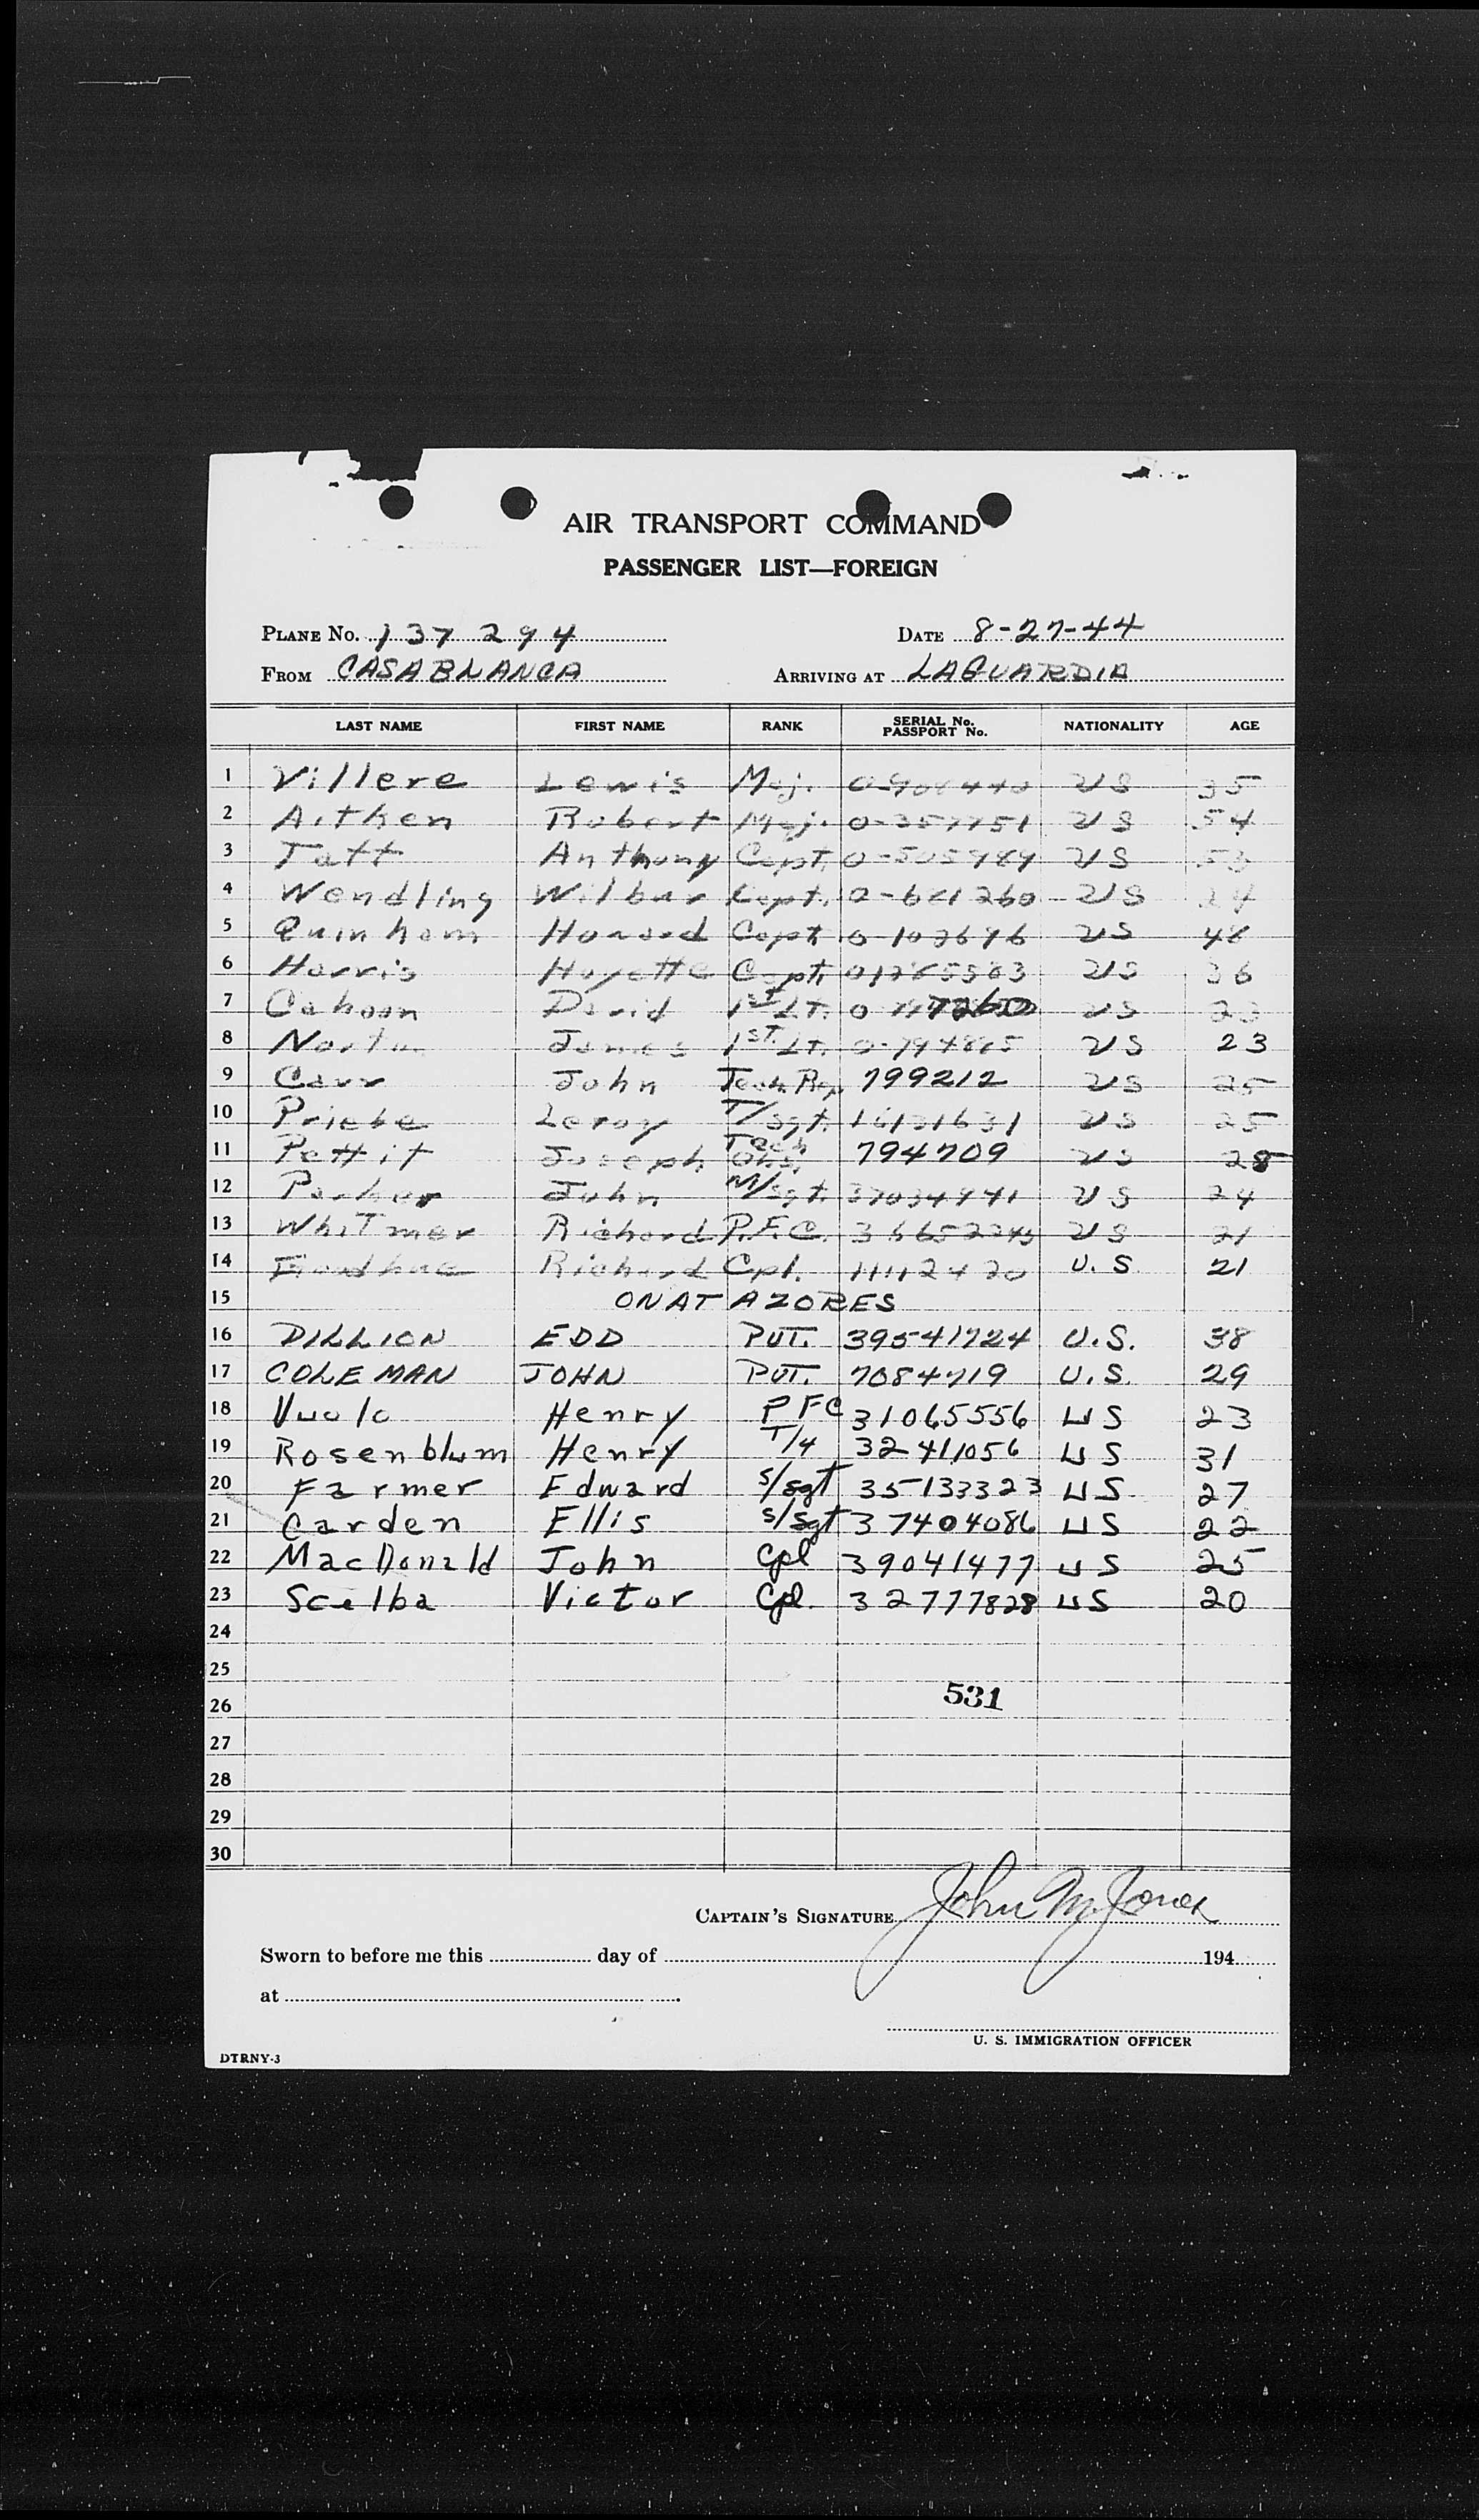 AIR TRANSPORT COMMAND
PASSENGER LIST—FOREIGN
PLANE No. 137 294 DATE 8-27-44
FROM CASABLANCA ARRIVING AT LAGUARDIA
LAST NAME FIRST NAME RANK SERIAL No. PASSPORT No. NATIONALITY AGE
1 Villere Lewis Maj. US 35
2 Aitken Robert Maj. US 54
3 Taft Anthony Capt. US 53
4 Wendling Wilbur Capt. US 24
5 Quinham Howard Capt US 48
6 Harris Hoyette Capt. US 36
7 Cahoon David 1st Lt. US 23
8 James 1st. Lt. US 23
9 Carr John Tech Rep 799212 US 25
10 Priebe Leroy T/Sgt. 16131631 US 25
11 Pettit Joseph Tech Obs. 794709 US 28
12 Parker John M/Sgt. 37034941 US 24
13 WhiTmer Richard P.F.C. US 21
14 Richard Cpl. 11112420 U.S 21
15 ON AT AZORES
16 DILLION EDD PVT. 39541724 U.S. 38
17 COLEMAN JOHN PVT. 7084719 U.S. 29
18 Vuolo Henry PFC 31065556 US 23
19 Rosenblum Henry T/4 32411056 US 31
20 Farmer Edward S/Sgt 35133323 US 27
21 Carden Ellis S/Sgt 37404086 US 22
22 MacDonald John Cpl 39041477 US 25
23 Scelba Victor Cpl. 32777828 US 20
24
25
26 531
27
28
29
30
CAPTAIN'S SIGNATURE John M. Jones
Sworn to before me this day of 194
at
U. S. IMMIGRATION OFFICER
DTRNY-3